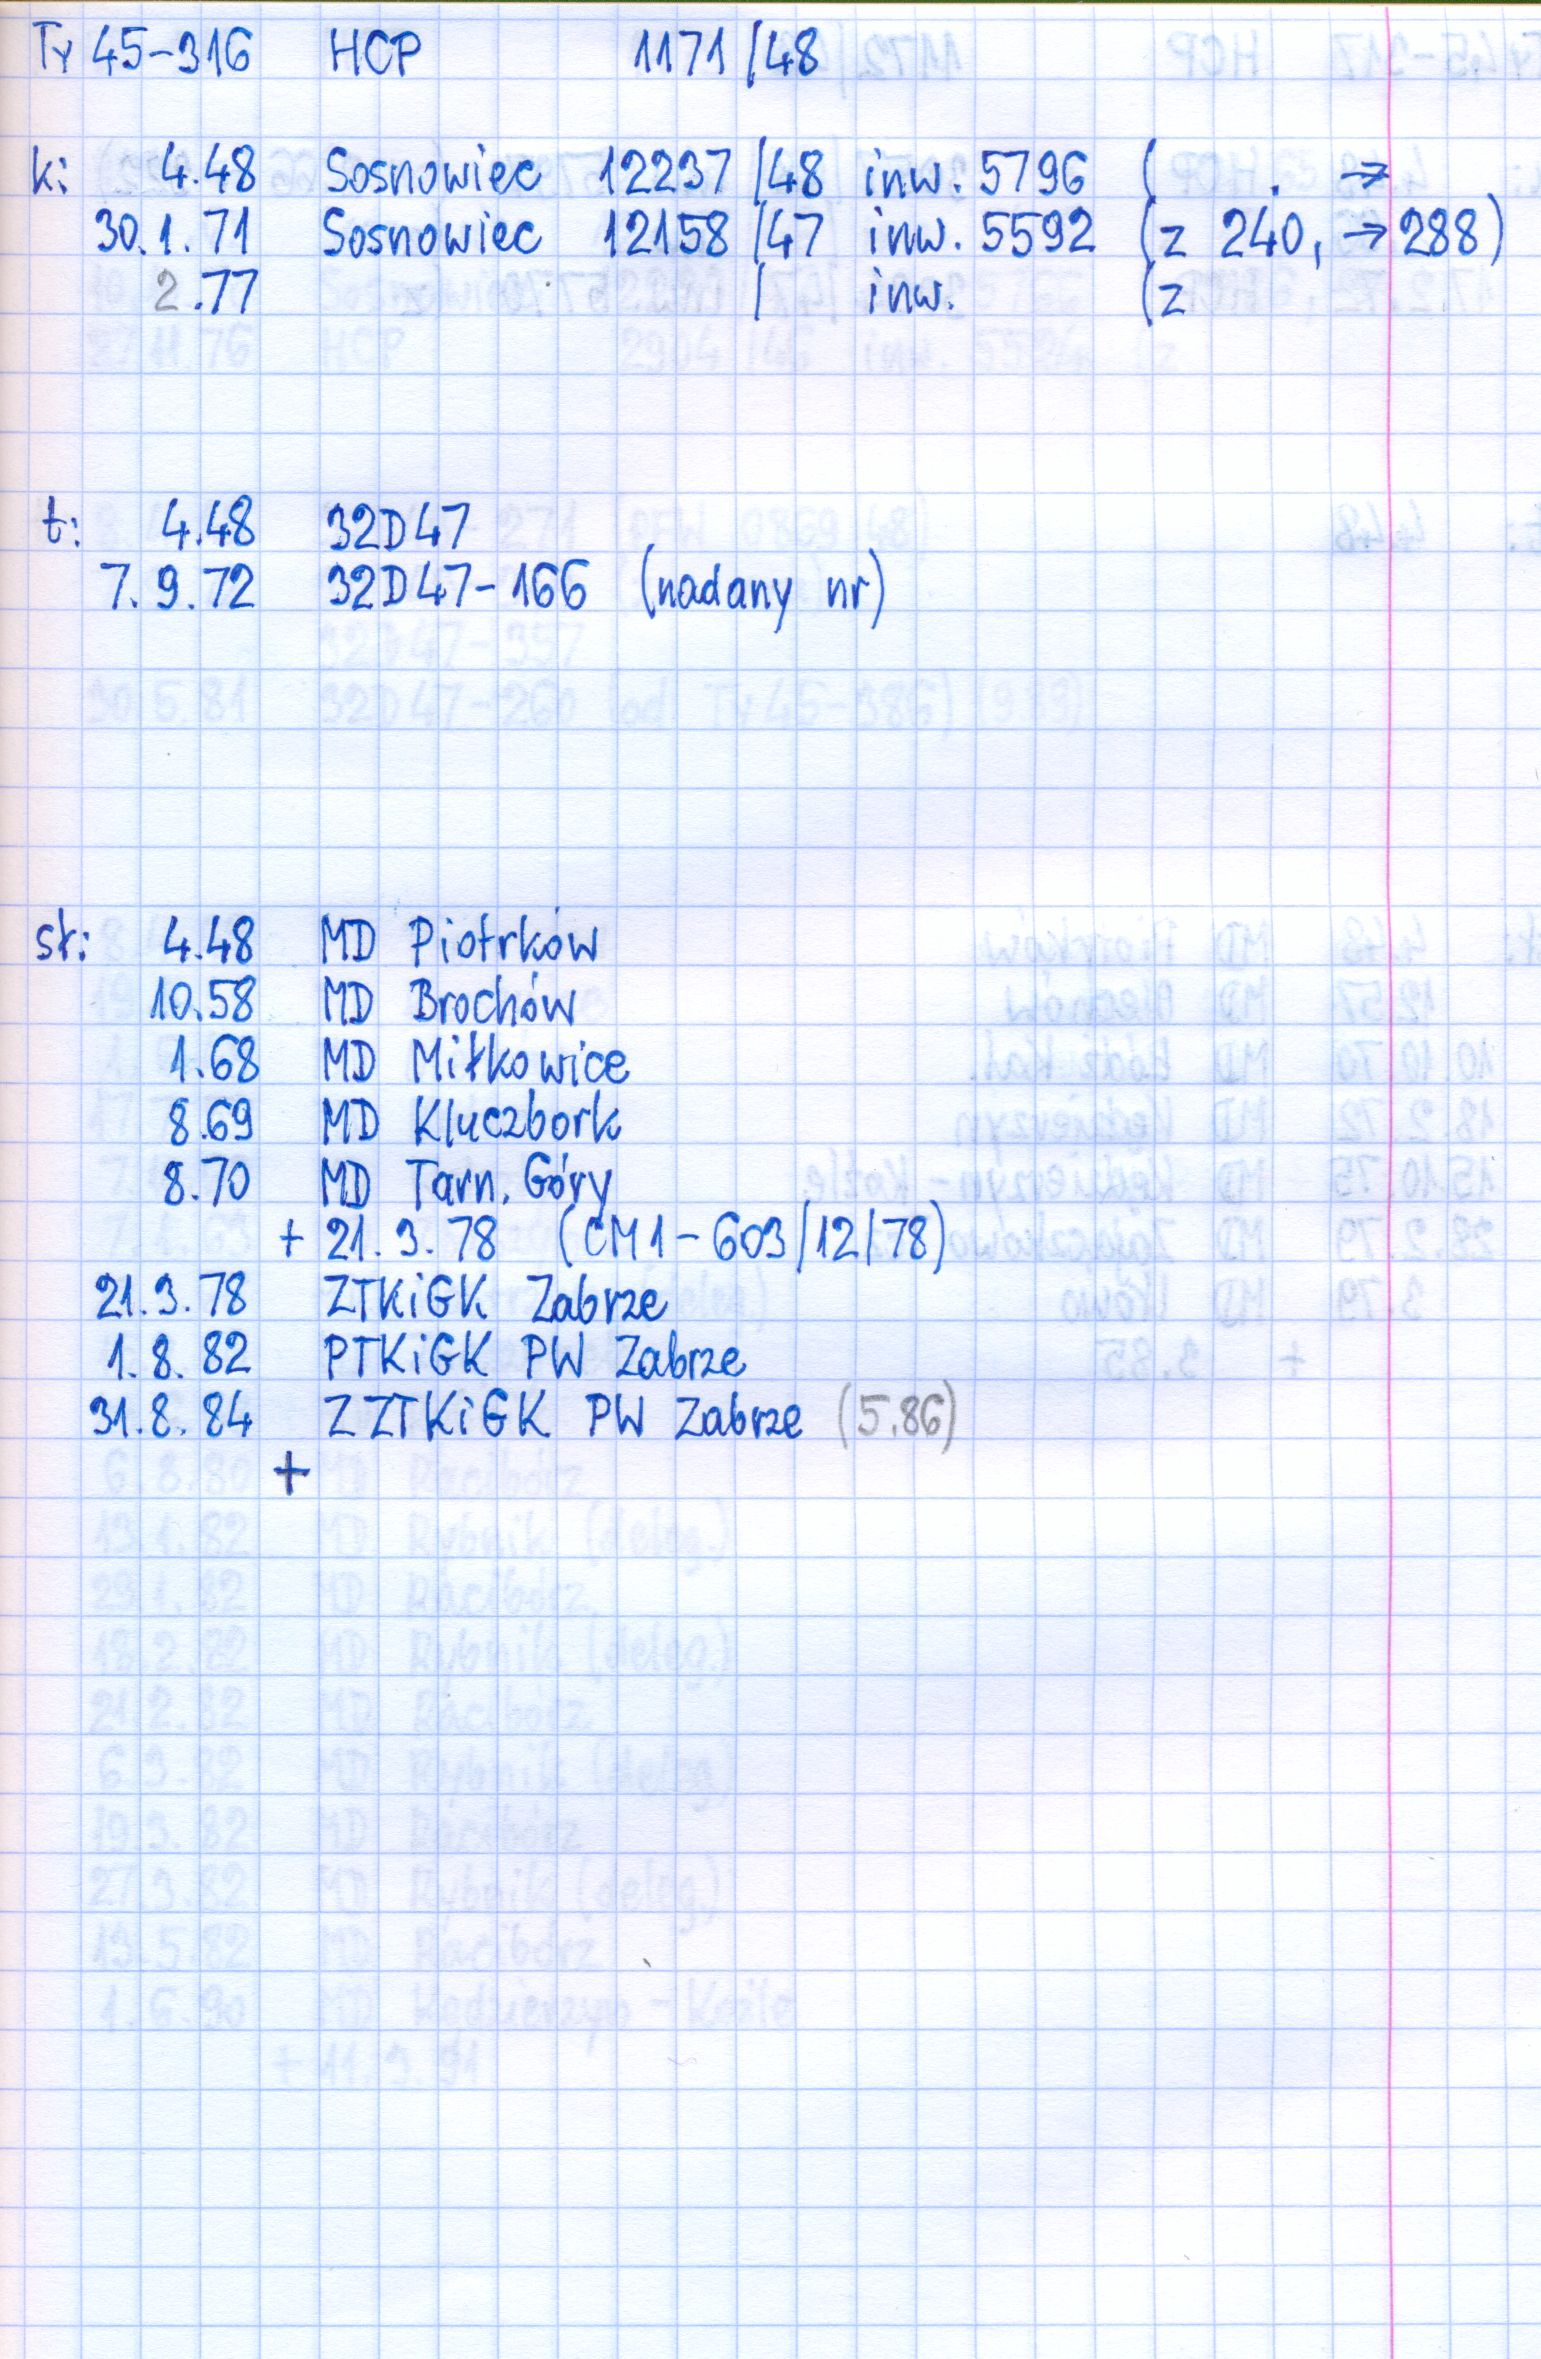 Ty 45-316 HCP 1171/48
k: 4.48 Sosnowiec 12237/48 inw. 5796 ( . →
30.1.71 Sosnowiec 12158/47 inw. 5592 (z 240, → 288)
2.77 / inw. (z
t: 4.48 32D47
7.9.72 32D47-166 (nadany nr)
st: 4.48 MD Piotrków
10.58 MD Brochów
1.68 MD Miłkowice
8.69 MD Kluczbork
8.70 MD Tarn. Góry
+ 21.3.78 (CM1-603/12/78)
21.3.78 ZTKiGK Zabrze
1.8.82 PTKiGK PW Zabrze
31.8.84 ZZTKiGK PW Zabrze (5.86)
+